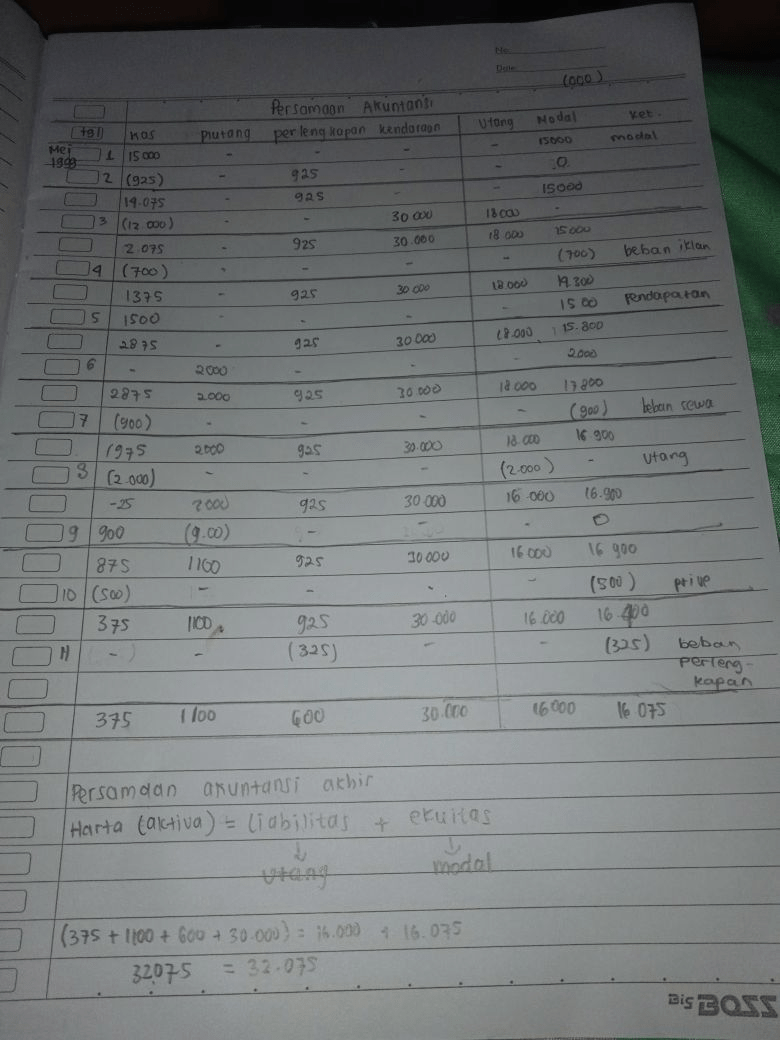 No.
Date
(000)
Persamaan Akuntansi
tgl kas piutang perlengkapan kendaraan Utang Modal ket.
Mei 1999 1 15 000 - - - - 15000 modal
2 (925) - 925 - - 0
14.075 - 925 - - 15000
3 (12.000) - - 30 000 18000 -
2.075 - 925 30.000 18.000 15000
4 (700) - - - - (700) beban iklan
1375 - 925 30.000 18.000 14.300
5 1500 - - - - 1500 Pendapatan
2875 - 925 30000 18.000 15.800
6 - 2000 - - - 2000
2875 2000 925 30.000 18.000 17800
7 (900) - - - - (900) beban sewa
1975 2000 925 30.000 18.000 16 900
8 (2.000) - - - (2.000) - Utang
-25 2000 925 30.000 16.000 16.900
9 900 (9.00) - - - 0
875 1100 925 30000 16000 16 900
10 (500) - - - - (500) prive
375 1100 925 30.000 16.000 16.400
11 - - (325) - - (325) beban
perleng-
kapan
375 1100 600 30.000 16000 16 075
Persamaan akuntansi akhir
Harta (aktiva) = liabilitas + ekuitas
↓ ↓
utang modal
(375 + 1100 + 600 + 30.000) = 16.000 + 16.075
32075 = 32.075
BiG BOSS